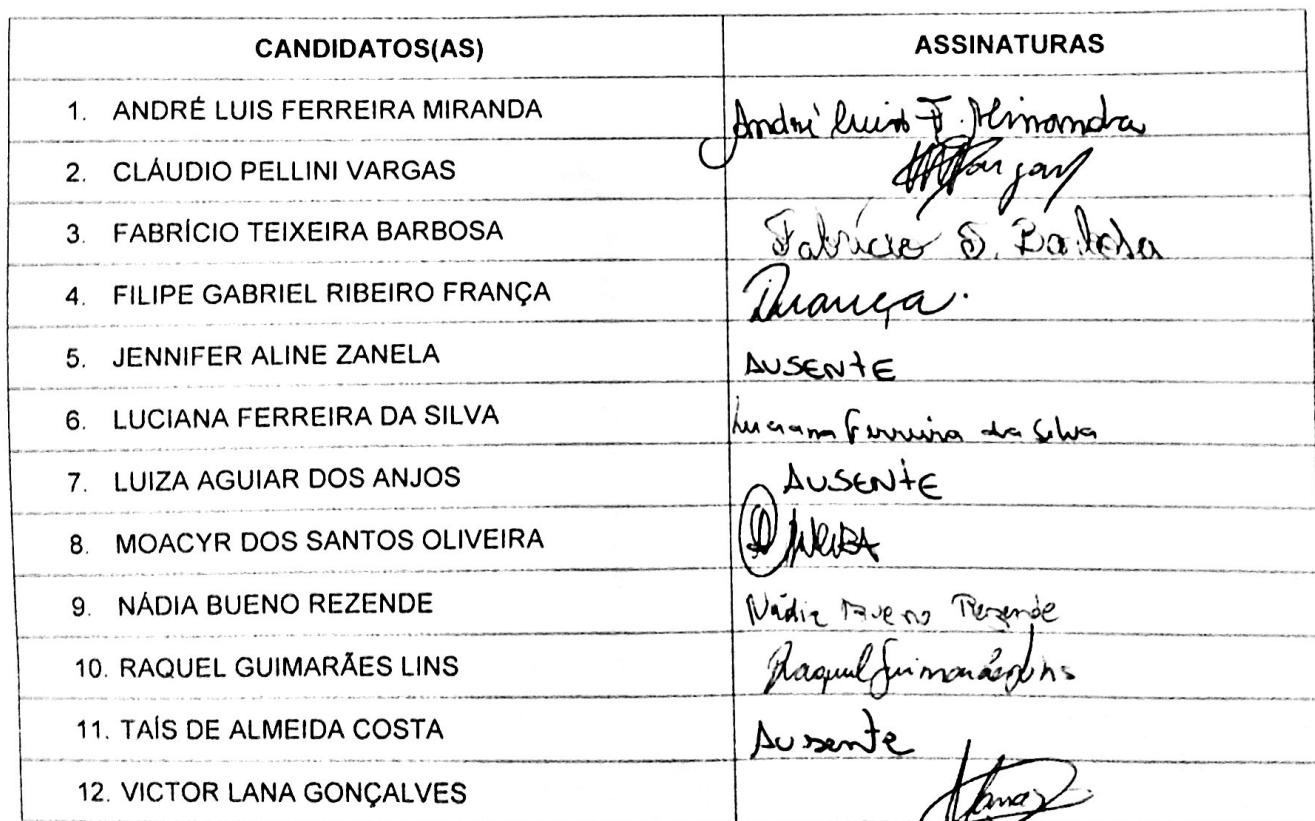 CANDIDATOS(AS) ASSINATURAS
1. ANDRÉ LUIS FERREIRA MIRANDA André Luis F. Miranda
2. CLÁUDIO PELLINI VARGAS Vargas
3. FABRÍCIO TEIXEIRA BARBOSA Fabrício T. Barbosa
4. FILIPE GABRIEL RIBEIRO FRANÇA França.
5. JENNIFER ALINE ZANELA AUSENTE
6. LUCIANA FERREIRA DA SILVA Luciana Ferreira da Silva
7. LUIZA AGUIAR DOS ANJOS AUSENTE
8. MOACYR DOS SANTOS OLIVEIRA
9. NÁDIA BUENO REZENDE Nádia Bueno Rezende
10. RAQUEL GUIMARÃES LINS Raquel Guimarães Lins
11. TAÍS DE ALMEIDA COSTA Ausente
12. VICTOR LANA GONÇALVES